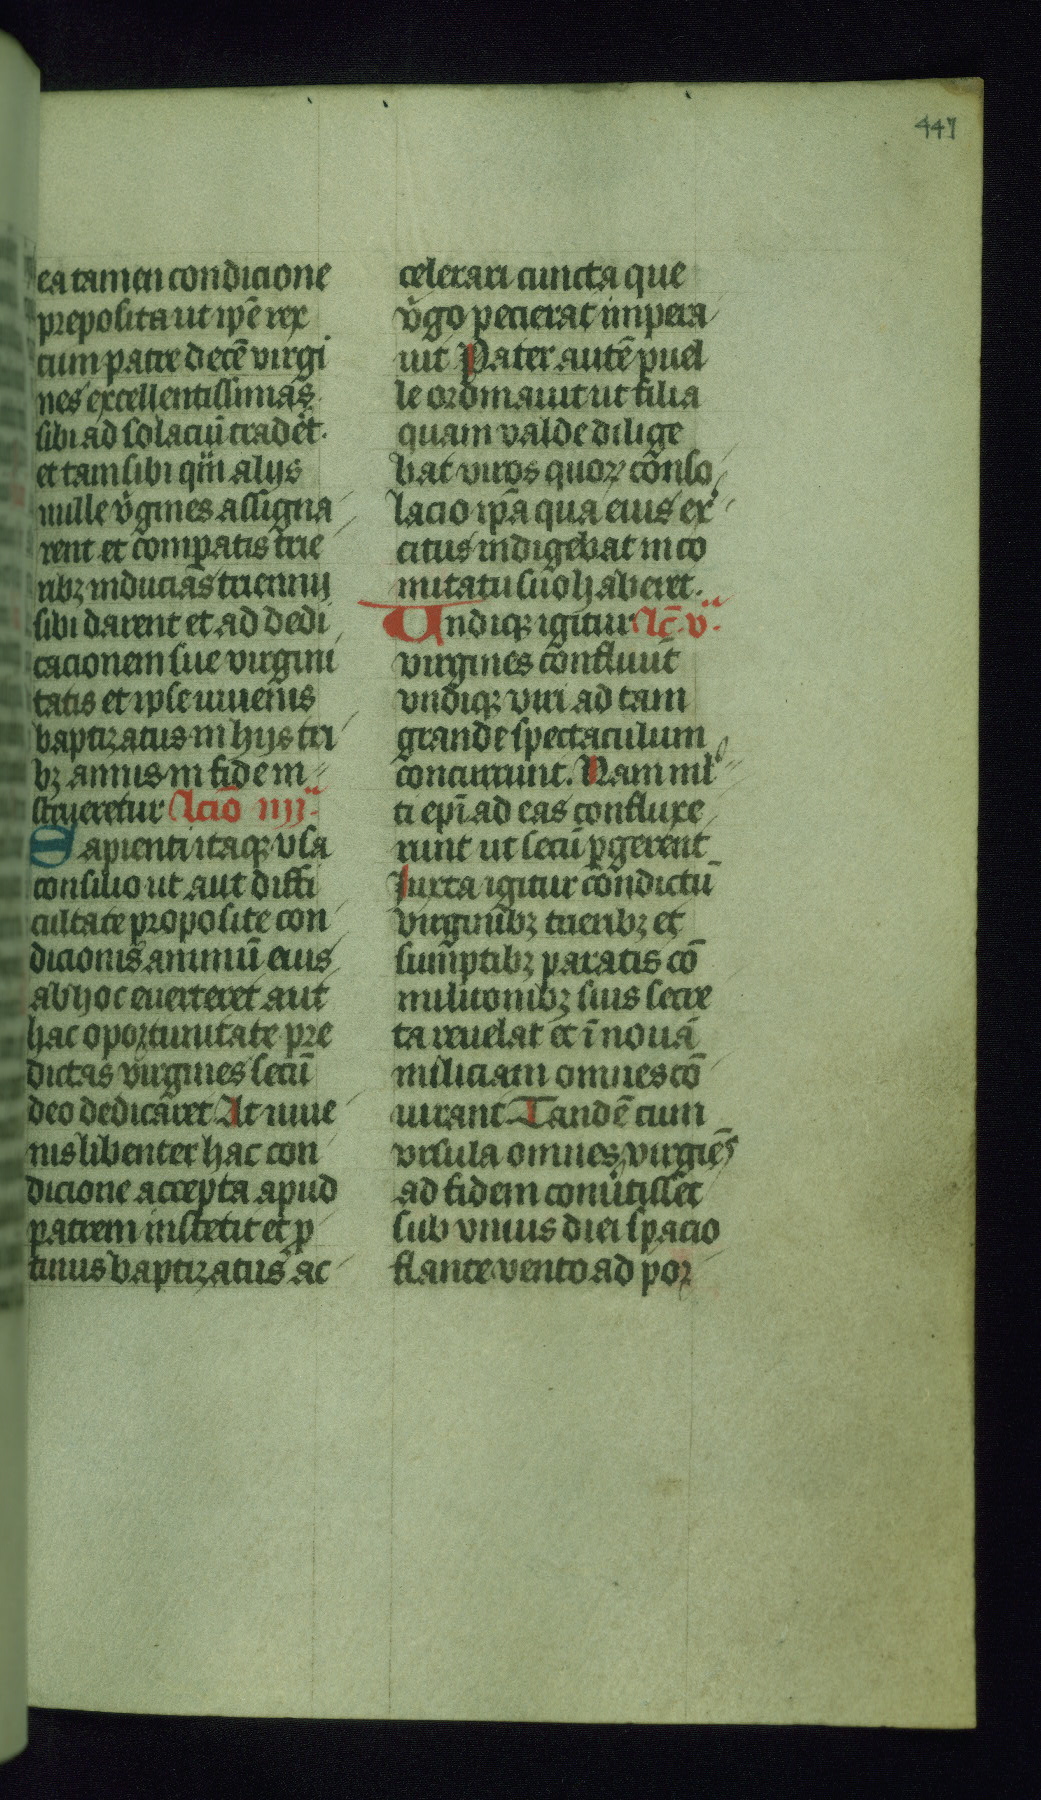 447
ea tamen condicione
preposita ut ip̄e rex
cum patre decē virgi
nes excellentissimas
sibi ad solaciū trad̄et.
et tam sibi q̄m alijs
mille v̄gines assigna
rent et comparatis trie
ribꝫ inducias triennij
sibi darent et ad dedi
cacionem sue virgini
tatis et ipse iuuenis
baptizatus in hijs tri
bꝫ annis in fide in
strueretur Lcio iiij
Sapienti itaqꝫ usa
consilio ut aut diffi
cultate proposite con
dicionis animū eius
ab hoc euerteret aut
hac oportunitate pre
dictas virgines secū
deo dedicaret At iuue
nis libenter hac con
dicione accepta apud
patrem institit et p̱
tinus baptizatus ac
celerari cuncta que
v̄go pecierat impera
uit Pater autē puel
le ordinauit ut filia
quam valde dilige
bat viros quoꝝ cōnso
lacio ip̄a qua eius ex̄
citus indigebat in co
mitatu suo haberet.
Undiqꝫ igitur Lc̄ v
virgines confluūt
vndiqꝫ viri ad tam
grande spectaculum
concurrunt. Nam ml̄
ti ep̄i ad eas confluxe
runt ut secū ꝑgerent
Iuxta igitur condictū
virginibꝫ trieribꝫ et
sumptibꝫ paratis cō
militonibꝫ suis secre
ta reuelat et ī nouā
miliciam omnes cō
iurant Tandē cum
vrsula omnes virgīes
ad fidem conūtisset
sub vnius diei spacio
flante vento ad por